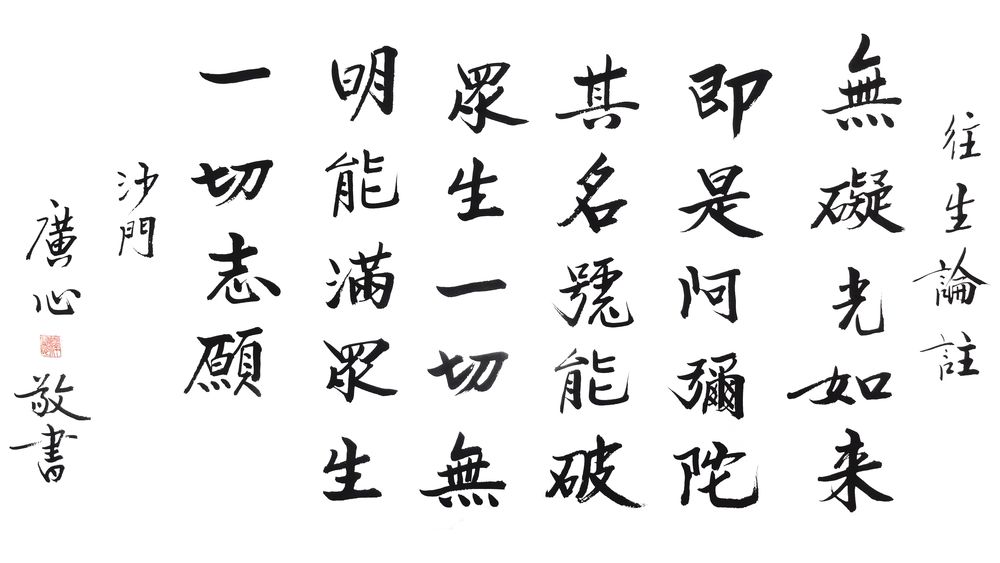 往生論註
無礙光如来
即是阿彌陀
其名號能破
眾生一切無
明能滿眾生
一切志願
沙門
廣心
敬書